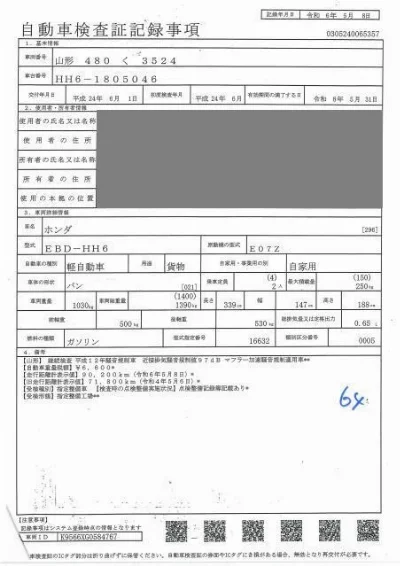 記録年月日 令和 6年 5月 8日
自動車検査証記録事項
0305240065357
1. 基本情報
車両番号 山形 480 く 3524
車台番号 HH6-1805046
交付年月日 平成 24年 6月 1日 初度検査年月 平成 24年 6月 有効期間の満了する日 令和 8年 5月 31日
2. 使用者・所有者情報
使用者の氏名又は名称
使用者の住所
所有者の氏名又は名称
所有者の住所
使用の本拠の位置
3. 車両詳細情報
車名 ホンダ [296]
型式 EBD-HH6 原動機の型式 E07Z
自動車の種別 軽自動車 用途 貨物 自家用・事業用の別 自家用
車体の形状 バン [021] 乗車定員 (4) 2人 最大積載量 (150) 250kg
車両重量 1030kg 車両総重量 (1400) 1390kg 長さ 339cm 幅 147cm 高さ 188cm
前軸重 500kg 後軸重 530kg 総排気量又は定格出力 0.65 L
燃料の種類 ガソリン 型式指定番号 16632 類別区分番号 0005
4. 備考
【山形】 継続検査 平成12年騒音規制車 近接排気騒音規制値97dB マフラー加速騒音規制適用車**
【自動車重量税額】¥6,600*
【走行距離計表示値】90,200km(令和6年5月8日)*
【旧走行距離計表示値】71,800km(令和4年5月6日)*
【受検種別】指定整備車 【検査時の点検整備実施状況】点検整備記録簿記載あり*
【受検形態】指定整備工場**
64
【注意事項】
記録事項はシステム登録時点の情報となります
車両ID K9566XG0584767